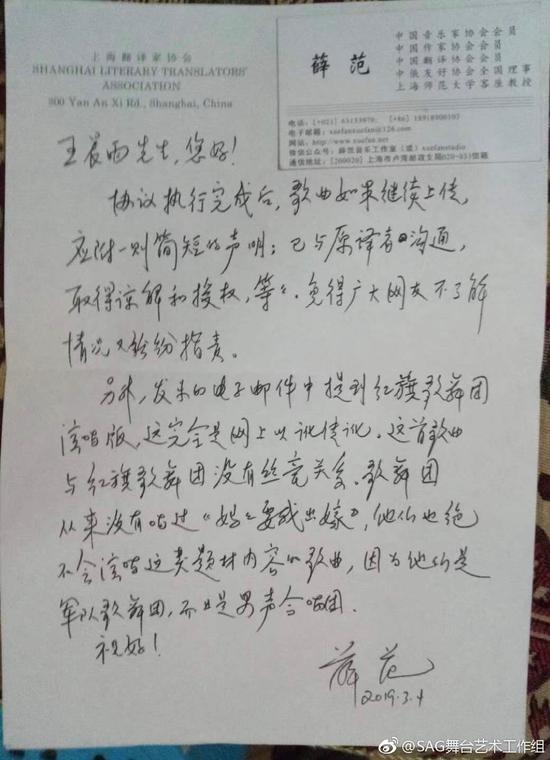 上海翻译家协会
SHANGHAI LITERARY TRANSLATORS'
ASSOCIATION
300 Yan An Xi Rd., Shanghai, China
薛 范
中国音乐家协会会员
中国作家协会会员
中国翻译协会会员
中俄友好协会全国理事
上海师范大学客座教授
电子邮箱：xuefanxuefan@126.com
网站：http://www.xuefan.net
微信公众号：薛范音乐工作室（或）xuefanstudio
通信地址：[200020] 上海市卢湾邮政支局020-031信箱
王晨雨先生，您好！
协议执行完成后，歌曲如果继续上传，
应附一则简短的声明：已与原译者沟通，
取得谅解和授权，等等。免得广大网友不了解
情况又纷纷指责。
另外，发来的电子邮件中提到红旗歌舞团
演唱版，这完全是网上以讹传讹。这首歌曲
与红旗歌舞团没有丝毫关系。歌舞团
从来没有唱过《妈妈要我出嫁》，他们也绝
不会演唱这类题材内容的歌曲，因为他们是
军队歌舞团，而且是男声合唱团。
祝好！
薛范
2019.3.4
@SAG舞台艺术工作组